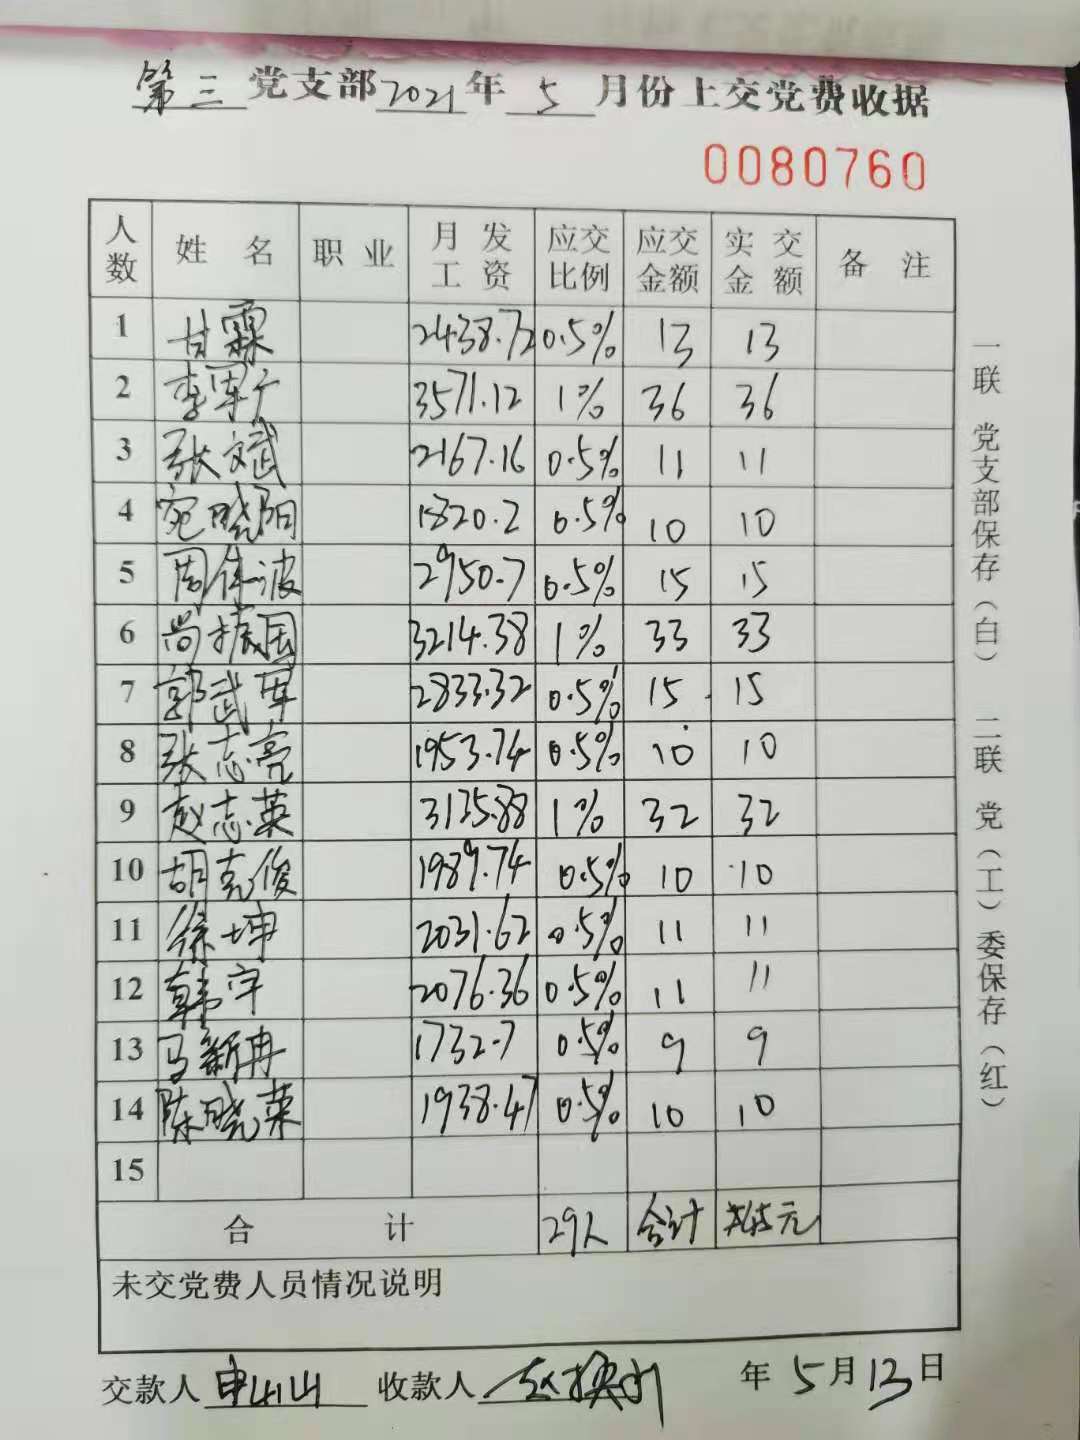 第三党支部2021年5月份上交党费收据
0080760
人数 姓名 职业 月发工资 应交比例 应交金额 实交金额 备注
1 甘霖 2438.72 0.5% 13 13
2 李军广 3571.12 1% 36 36
3 张文斌 2167.16 0.5% 11 11
4 宛晓阳 1820.2 0.5% 10 10
5 周伟波 2950.7 0.5% 15 15
6 尚振国 3214.38 1% 33 33
7 郭武军 2833.32 0.5% 15 15
8 张志亮 1953.74 0.5% 10 10
9 赵志英 3135.88 1% 32 32
10 胡克俊 1989.74 0.5% 10 10
11 徐坤 2031.62 0.5% 11 11
12 韩宇 2076.36 0.5% 11 11
13 马新冉 1732.7 0.5% 9 9
14 陈晓荣 1938.47 0.5% 10 10
15
合计 29人 合计 元
未交党费人员情况说明
交款人 申 山 收款人 赵换 年5月13日
一联 党支部保存（白） 二联 党（工）委保存（红）